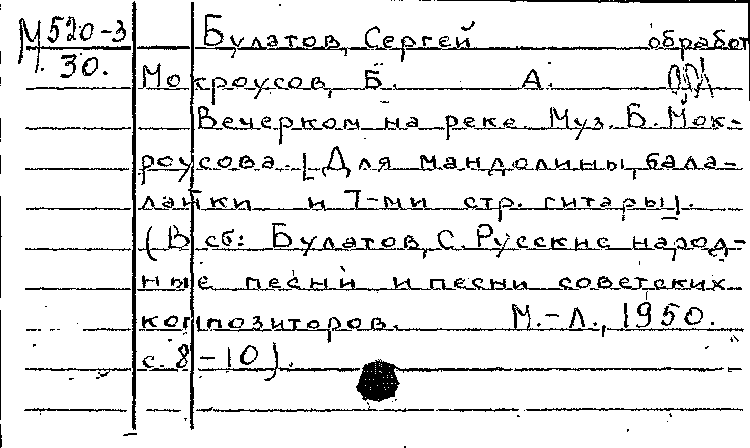 М520-3 Булатов, Сергей обработ
30. Мокроусов, Б. А.
Вечерком на реке Муз. Б. Мок-
роусова. [Для мандолины, бала-
лайки и 7-ми стр. гитары].
(В сб: Булатов, С. Русские народ-
ные песни и песни советских
композиторов. М.-Л., 1950.
с. 8-10).